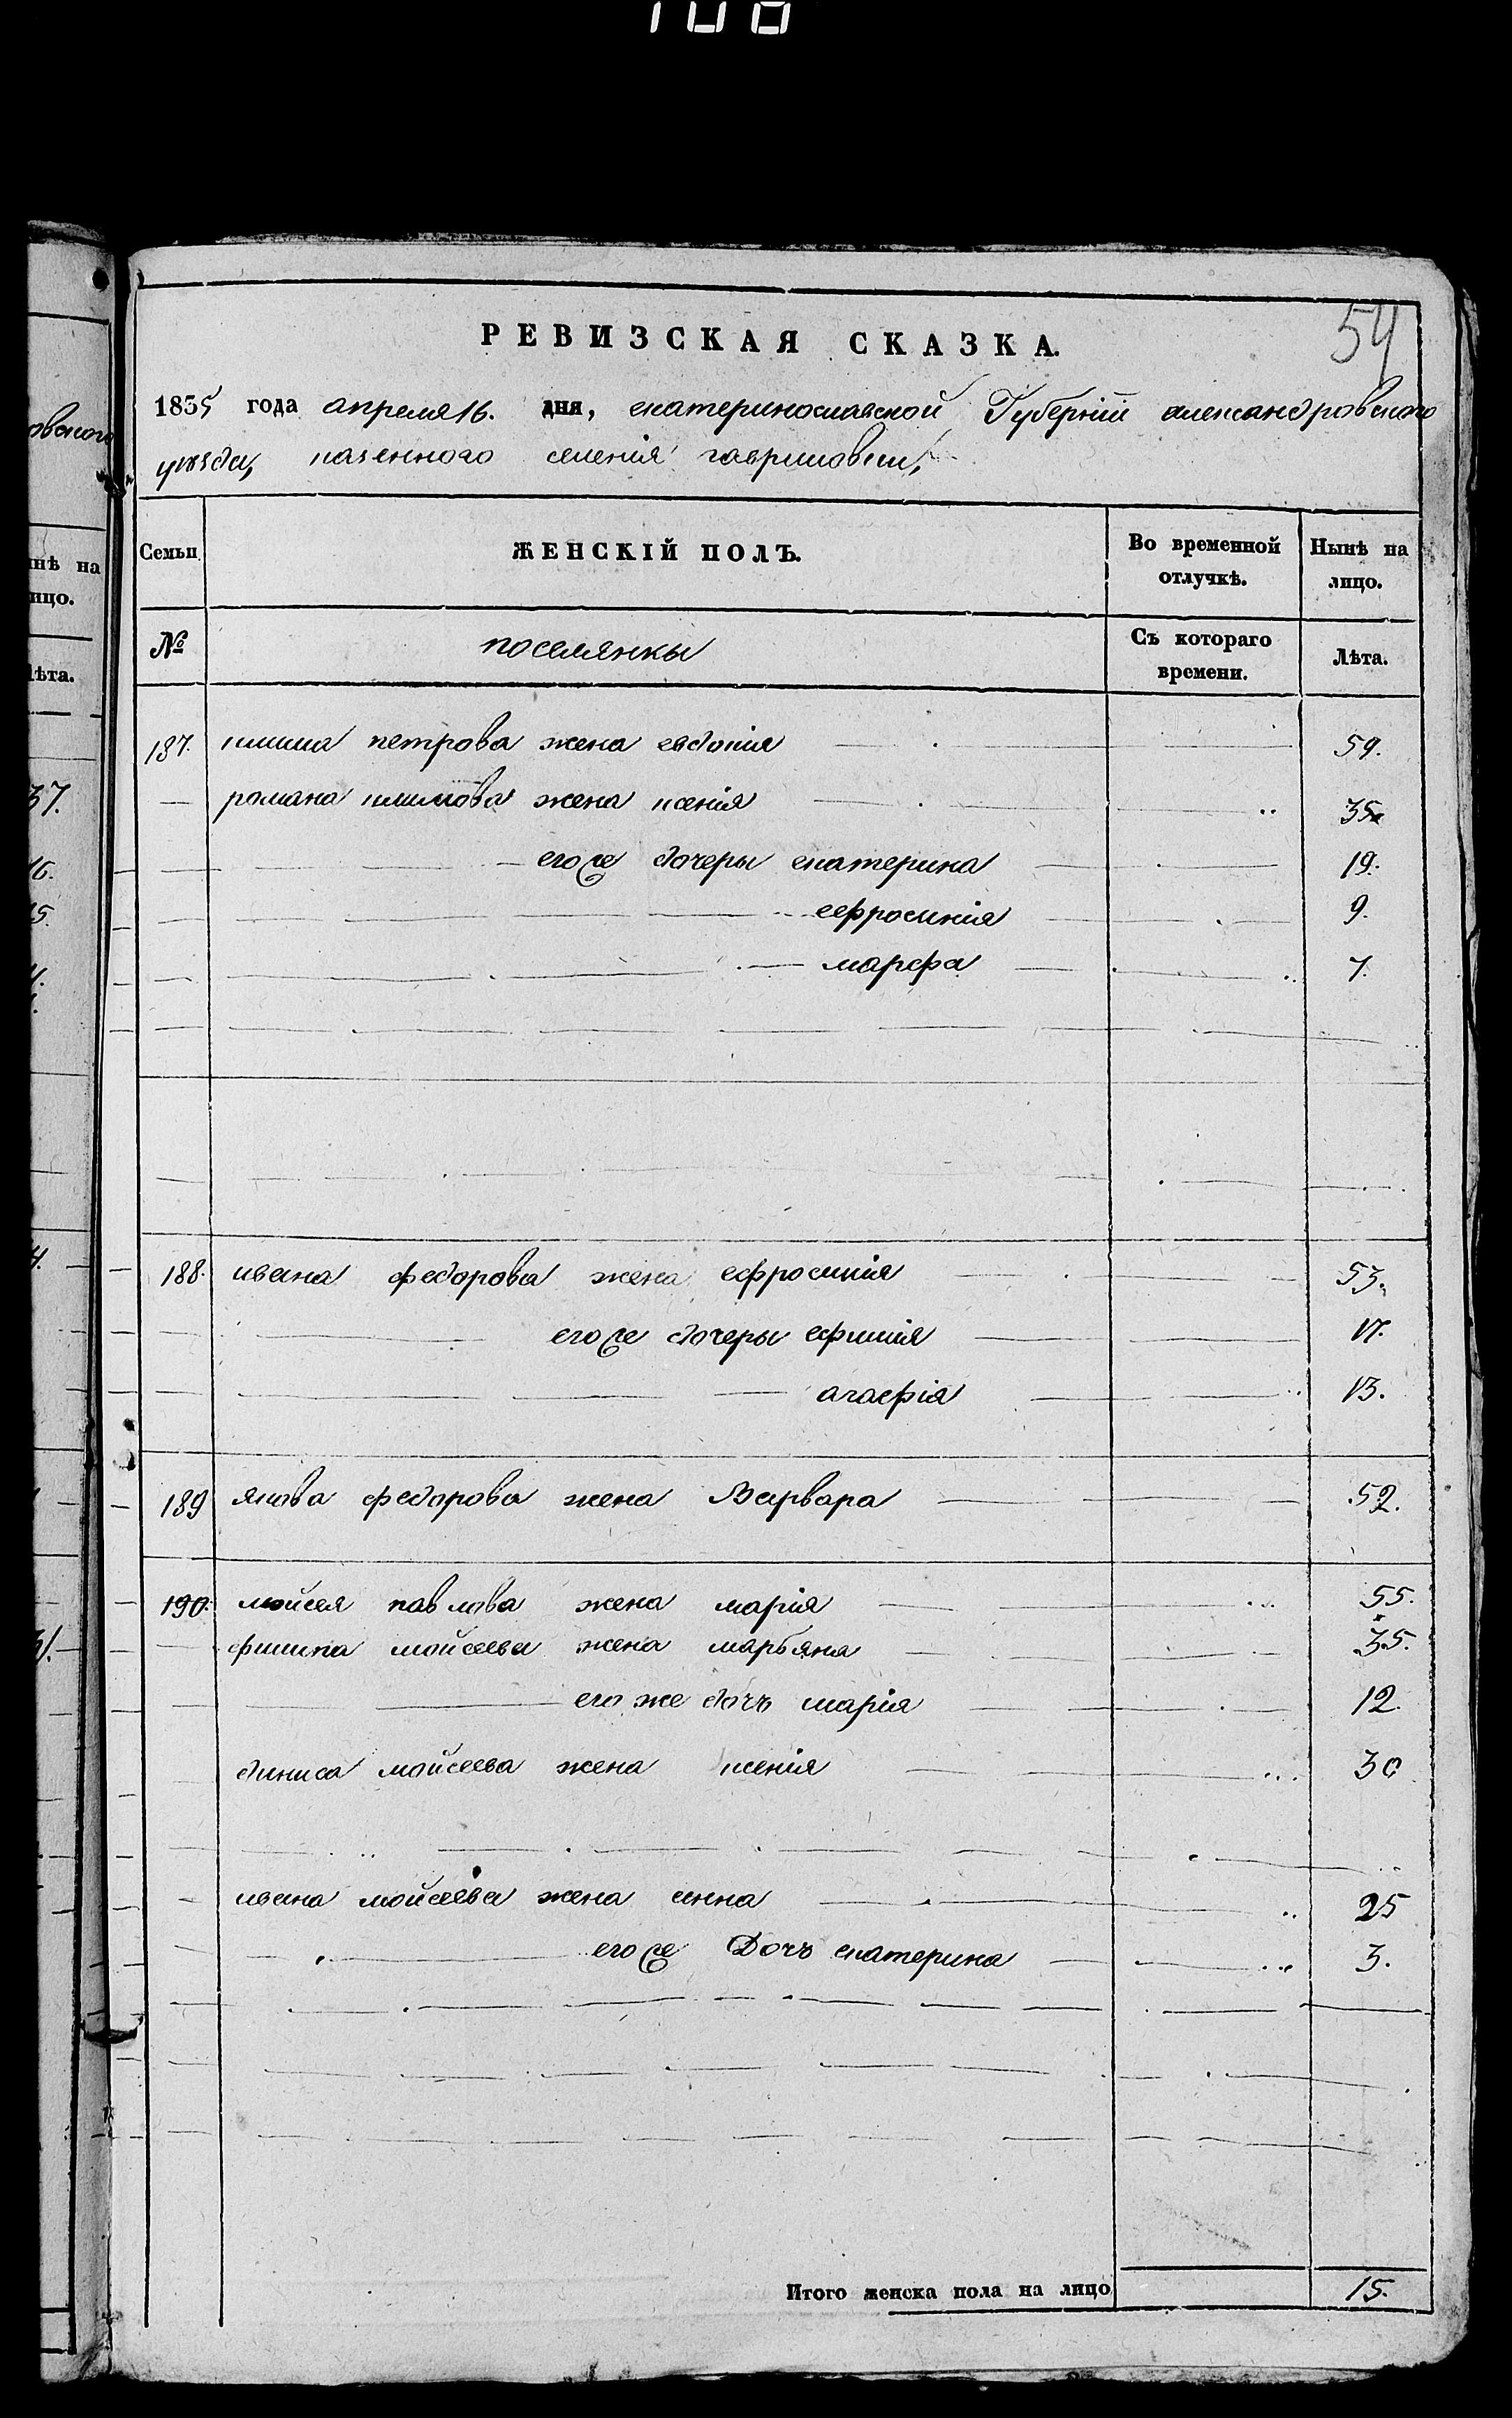 108
54
РЕВИЗСКАЯ СКАЗКА.
1835 года апреля 16. дня, екатеринославской Губерніи александровского
уѣзда, казенного селенія гавриловки,
Семьи ЖЕНСКІЙ ПОЛЪ. Во временной отлучкѣ. Нынѣ на лицо.
№ поселянки Съ котораго времени. Лѣта.
187. клима петрова жена евдокія 59.
романа климова жена ксенія 35.
его же дочеры екатерина 19.
ефросинія 9.
марфа 7.
188. ивана федорова жена ефросинія 53.
его же дочеры ефимія 17.
агафія 13.
189 якова федорова жена Варвара 52.
190. мойсея павлова жена марія 55.
филипа мойсеева жена марьяна 35.
его же дочъ марія 12.
диниса мойсеева жена ксенія 30
ивана мойсеева жена анна 25
его же Дочъ екатерина 3.
Итого женска пола на лицо 15.